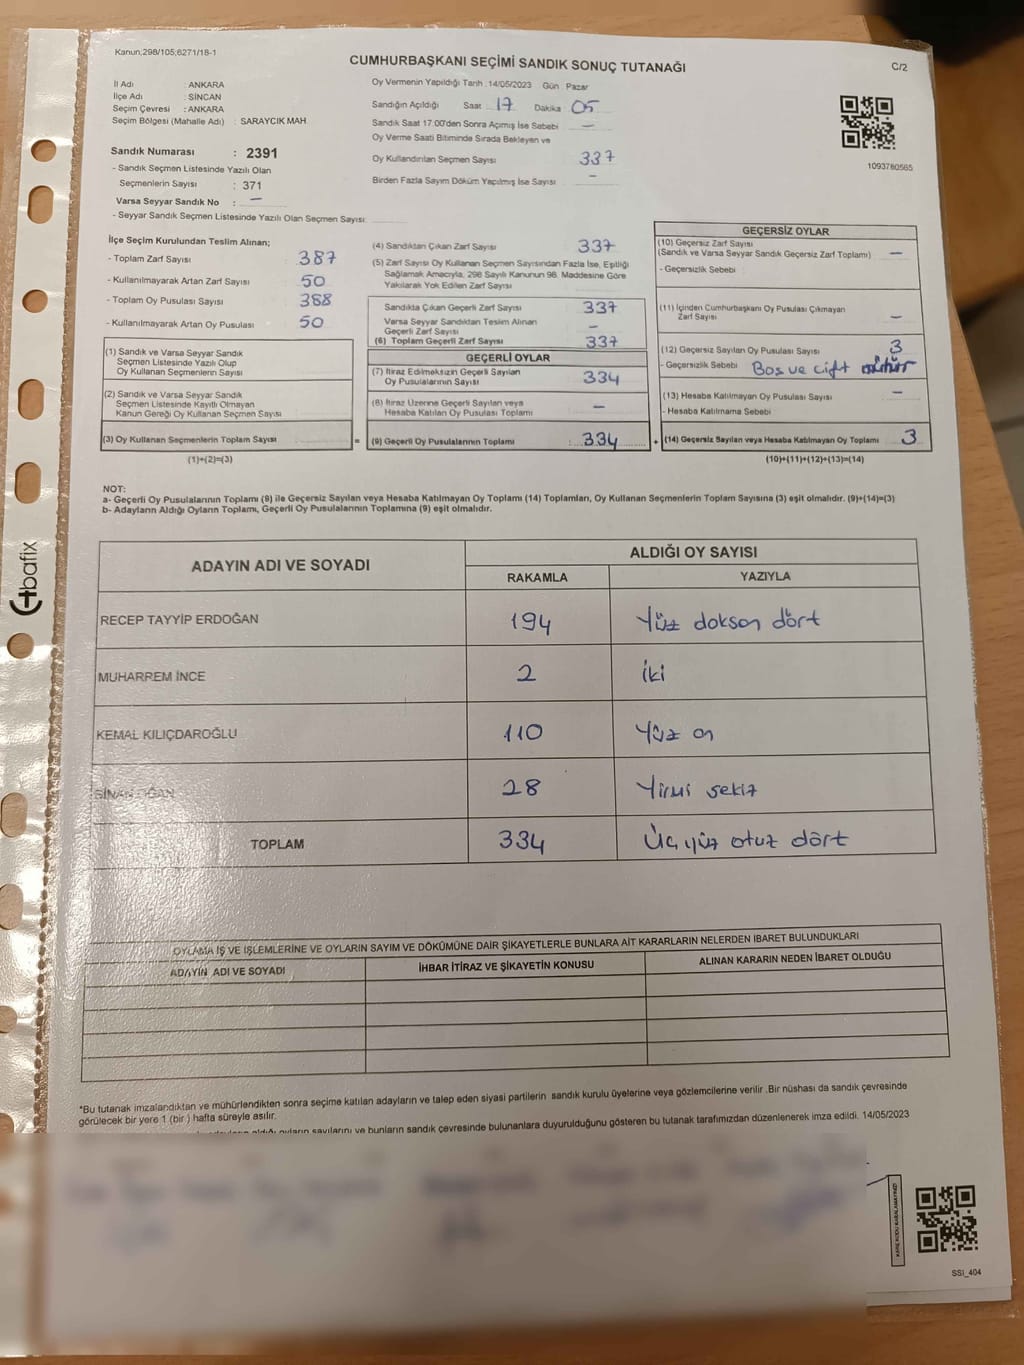 Kanun,298/105;6271/18-1
CUMHURBAŞKANI SEÇİMİ SANDIK SONUÇ TUTANAĞI
C/2
İl Adı : ANKARA
İlçe Adı : SİNCAN
Seçim Çevresi : ANKARA
Seçim Bölgesi (Mahalle Adı) : SARAYCIK MAH.
Sandık Numarası : 2391
- Sandık Seçmen Listesinde Yazılı Olan
Seçmenlerin Sayısı : 371
Varsa Seyyar Sandık No : —
- Seyyar Sandık Seçmen Listesinde Yazılı Olan Seçmen Sayısı:
Oy Vermenin Yapıldığı Tarih :14/05/2023 Gün : Pazar
Sandığın Açıldığı Saat : 17 Dakika : 05
Sandık Saat 17.00'den Sonra Açımış İse Sebebi : —
Oy Verme Saati Bitiminde Sırada Bekleyen ve
Oy Kullandırılan Seçmen Sayısı 337
Birden Fazla Sayım Döküm Yapılmış İse Sayısı : —
1093780565
İlçe Seçim Kurulundan Teslim Alınan;
- Toplam Zarf Sayısı 387
- Kullanılmayarak Artan Zarf Sayısı 50
- Toplam Oy Pusulası Sayısı 388
- Kullanılmayarak Artan Oy Pusulası 50
(1) Sandık ve Varsa Seyyar Sandık
Seçmen Listesinde Yazılı Olup
Oy Kullanan Seçmenlerin Sayısı
(2) Sandık ve Varsa Seyyar Sandık
Seçmen Listesinde Kayıtlı Olmayan
Kanun Gereği Oy Kullanan Seçmen Sayısı
(3) Oy Kullanan Seçmenlerin Toplam Sayısı =
(1)+(2)=(3)
(4) Sandıktan Çıkan Zarf Sayısı 337
(5) Zarf Sayısı Oy Kullanan Seçmen Sayısından Fazla İse, Eşitliği
Sağlamak Amacıyla, 298 Sayılı Kanunun 98. Maddesine Göre
Yakılarak Yok Edilen Zarf Sayısı :
Sandıkta Çıkan Geçerli Zarf Sayısı 337
Varsa Seyyar Sandıktan Teslim Alınan
Geçerli Zarf Sayısı —
(6) Toplam Geçerli Zarf Sayısı 337
GEÇERLİ OYLAR
(7) İtiraz Edilmeksizin Geçerli Sayılan
Oy Pusulalarının Sayısı 334
(8) İtiraz Üzerine Geçerli Sayılan veya
Hesaba Katılan Oy Pusulası Toplamı —
(9) Geçerli Oy Pusulalarının Toplamı : 334 +
GEÇERSİZ OYLAR
(10) Geçersiz Zarf Sayısı
(Sandık ve Varsa Seyyar Sandık Geçersiz Zarf Toplamı) —
- Geçersizlik Sebebi :
(11) İçinden Cumhurbaşkanı Oy Pusulası Çıkmayan
Zarf Sayısı —
(12) Geçersiz Sayılan Oy Pusulası Sayısı 3
- Geçersizlik Sebebi : Boş ve çift mühür
(13) Hesaba Katılmayan Oy Pusulası Sayısı —
- Hesaba Katılmama Sebebi
(14) Geçersiz Sayılan veya Hesaba Katılmayan Oy Toplamı 3
(10)+(11)+(12)+(13)=(14)
NOT:
a- Geçerli Oy Pusulalarının Toplamı (9) ile Geçersiz Sayılan veya Hesaba Katılmayan Oy Toplamı (14) Toplamları, Oy Kullanan Seçmenlerin Toplam Sayısına (3) eşit olmalıdır. (9)+(14)=(3)
b- Adayların Aldığı Oyların Toplamı, Geçerli Oy Pusulalarının Toplamına (9) eşit olmalıdır.
bafix
ADAYIN ADI VE SOYADI
ALDIĞI OY SAYISI
RAKAMLA YAZIYLA
RECEP TAYYİP ERDOĞAN 194 Yüz doksan dört
MUHARREM İNCE 2 İki
KEMAL KILIÇDAROĞLU 110 Yüz on
SİNAN OĞAN 28 Yirmi sekiz
TOPLAM 334 Üç yüz otuz dört
OYLAMA İŞ VE İŞLEMLERİNE VE OYLARIN SAYIM VE DÖKÜMÜNE DAİR ŞİKAYETLERLE BUNLARA AİT KARARLARIN NELERDEN İBARET BULUNDUKLARI
ADAYIN ADI VE SOYADI İHBAR İTİRAZ VE ŞİKAYETİN KONUSU ALINAN KARARIN NEDEN İBARET OLDUĞU
*Bu tutanak imzalandıktan ve mühürlendikten sonra seçime katılan adayların ve talep eden siyasi partilerin sandık kurulu üyelerine veya gözlemcilerine verilir .Bir nüshası da sandık çevresinde
görülecek bir yere 1 (bir ) hafta süreyle asılır.
aldığı oyların sayılarını ve bunların sandık çevresinde bulunanlara duyurulduğunu gösteren bu tutanak tarafımızdan düzenlenerek imza edildi. 14/05/2023
KARE KODU KARALAMAYINIZ!
SSİ_404